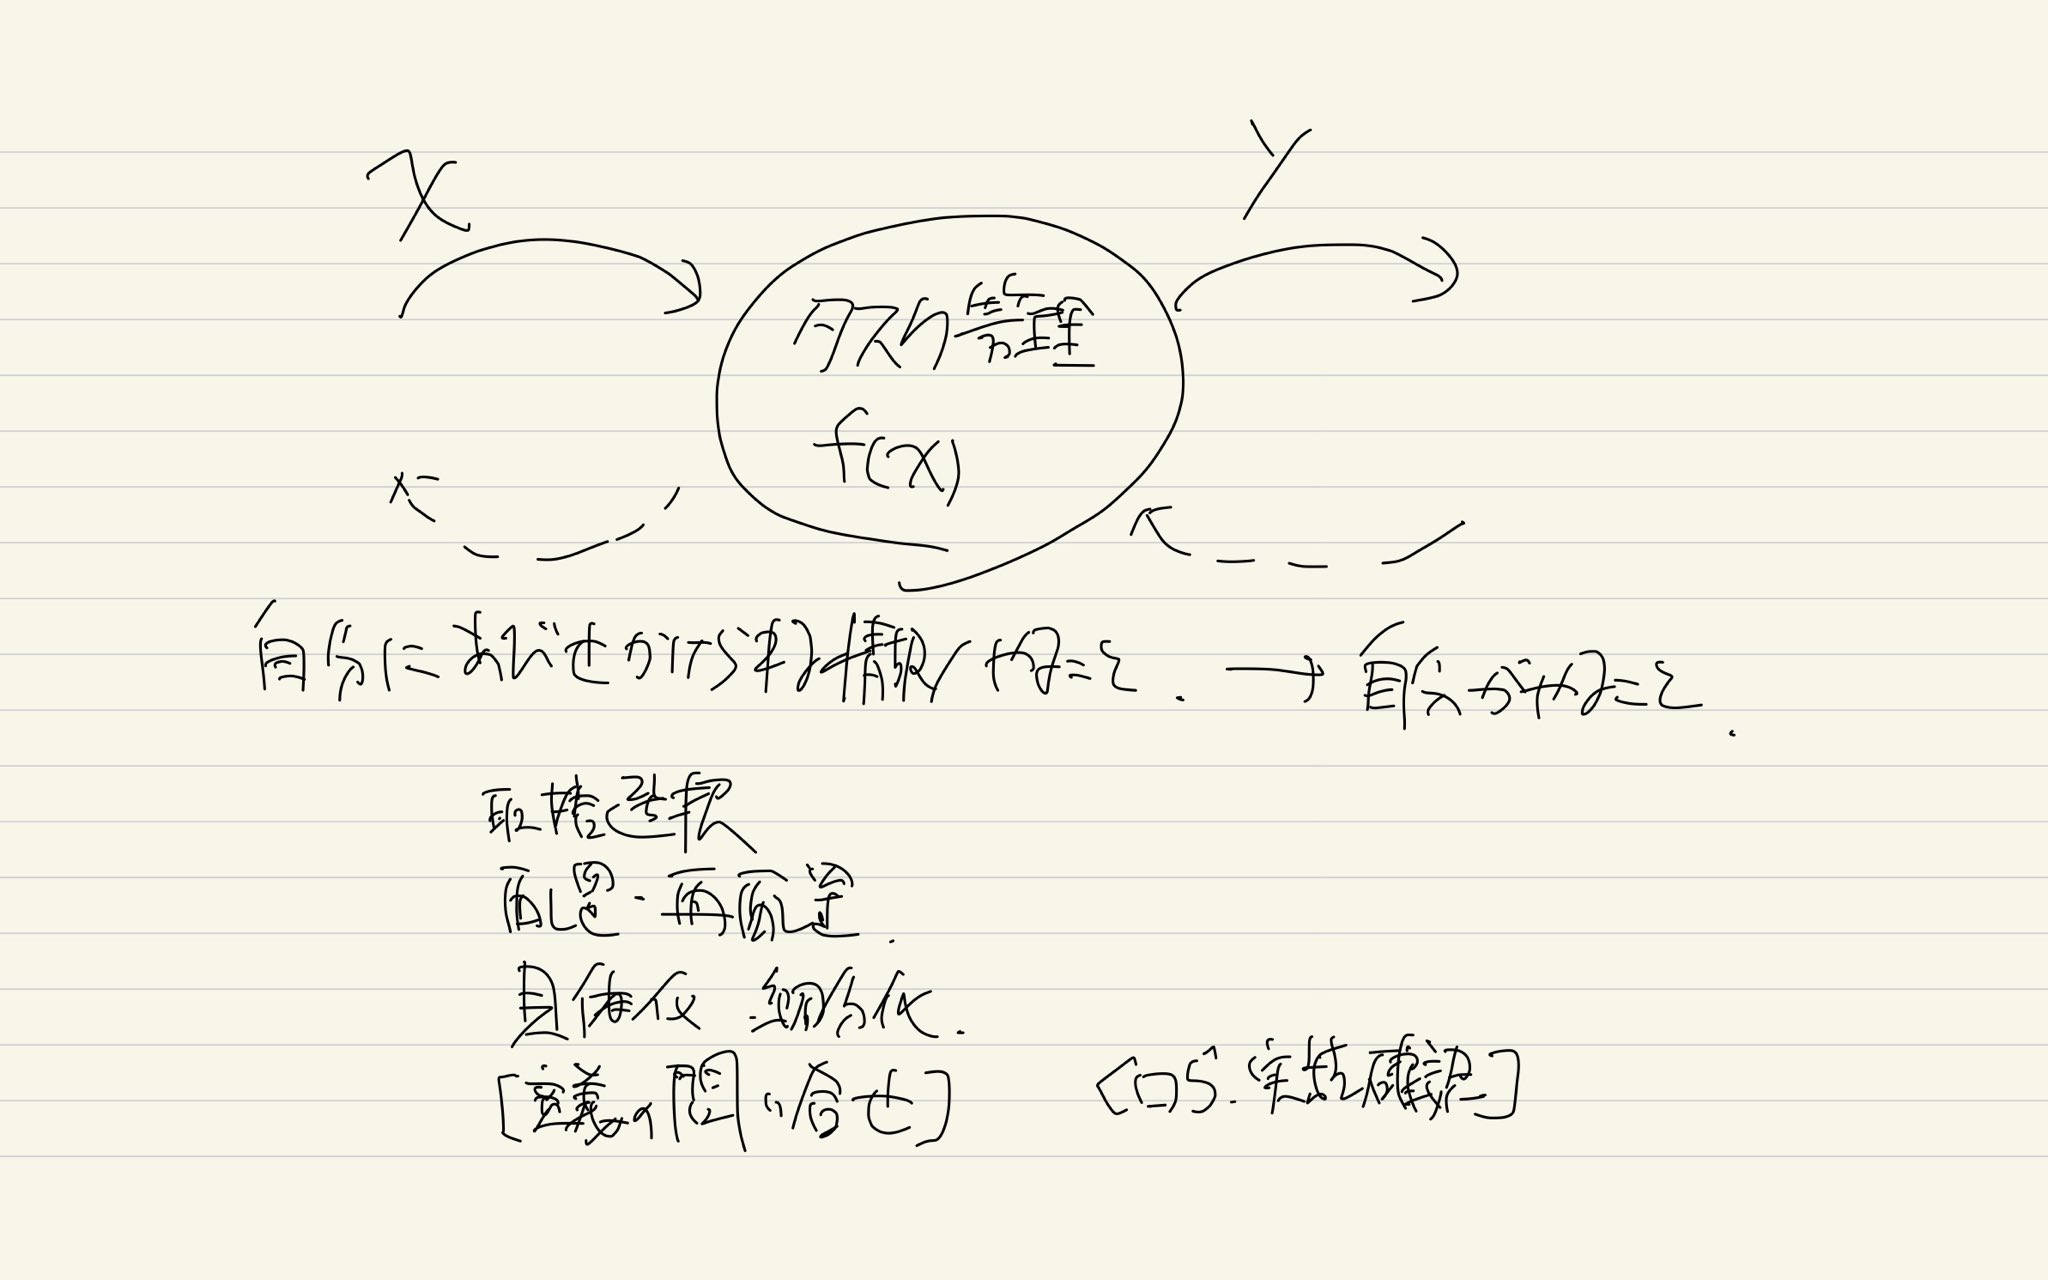 x
y
タスク管理
f(x)
自分にあびせかけられる情報/やること. → 自分がやること.
取捨選択
配置・再配置.
具体化 細分化.
[定義の問い合せ]
[ログ. 実基確認]